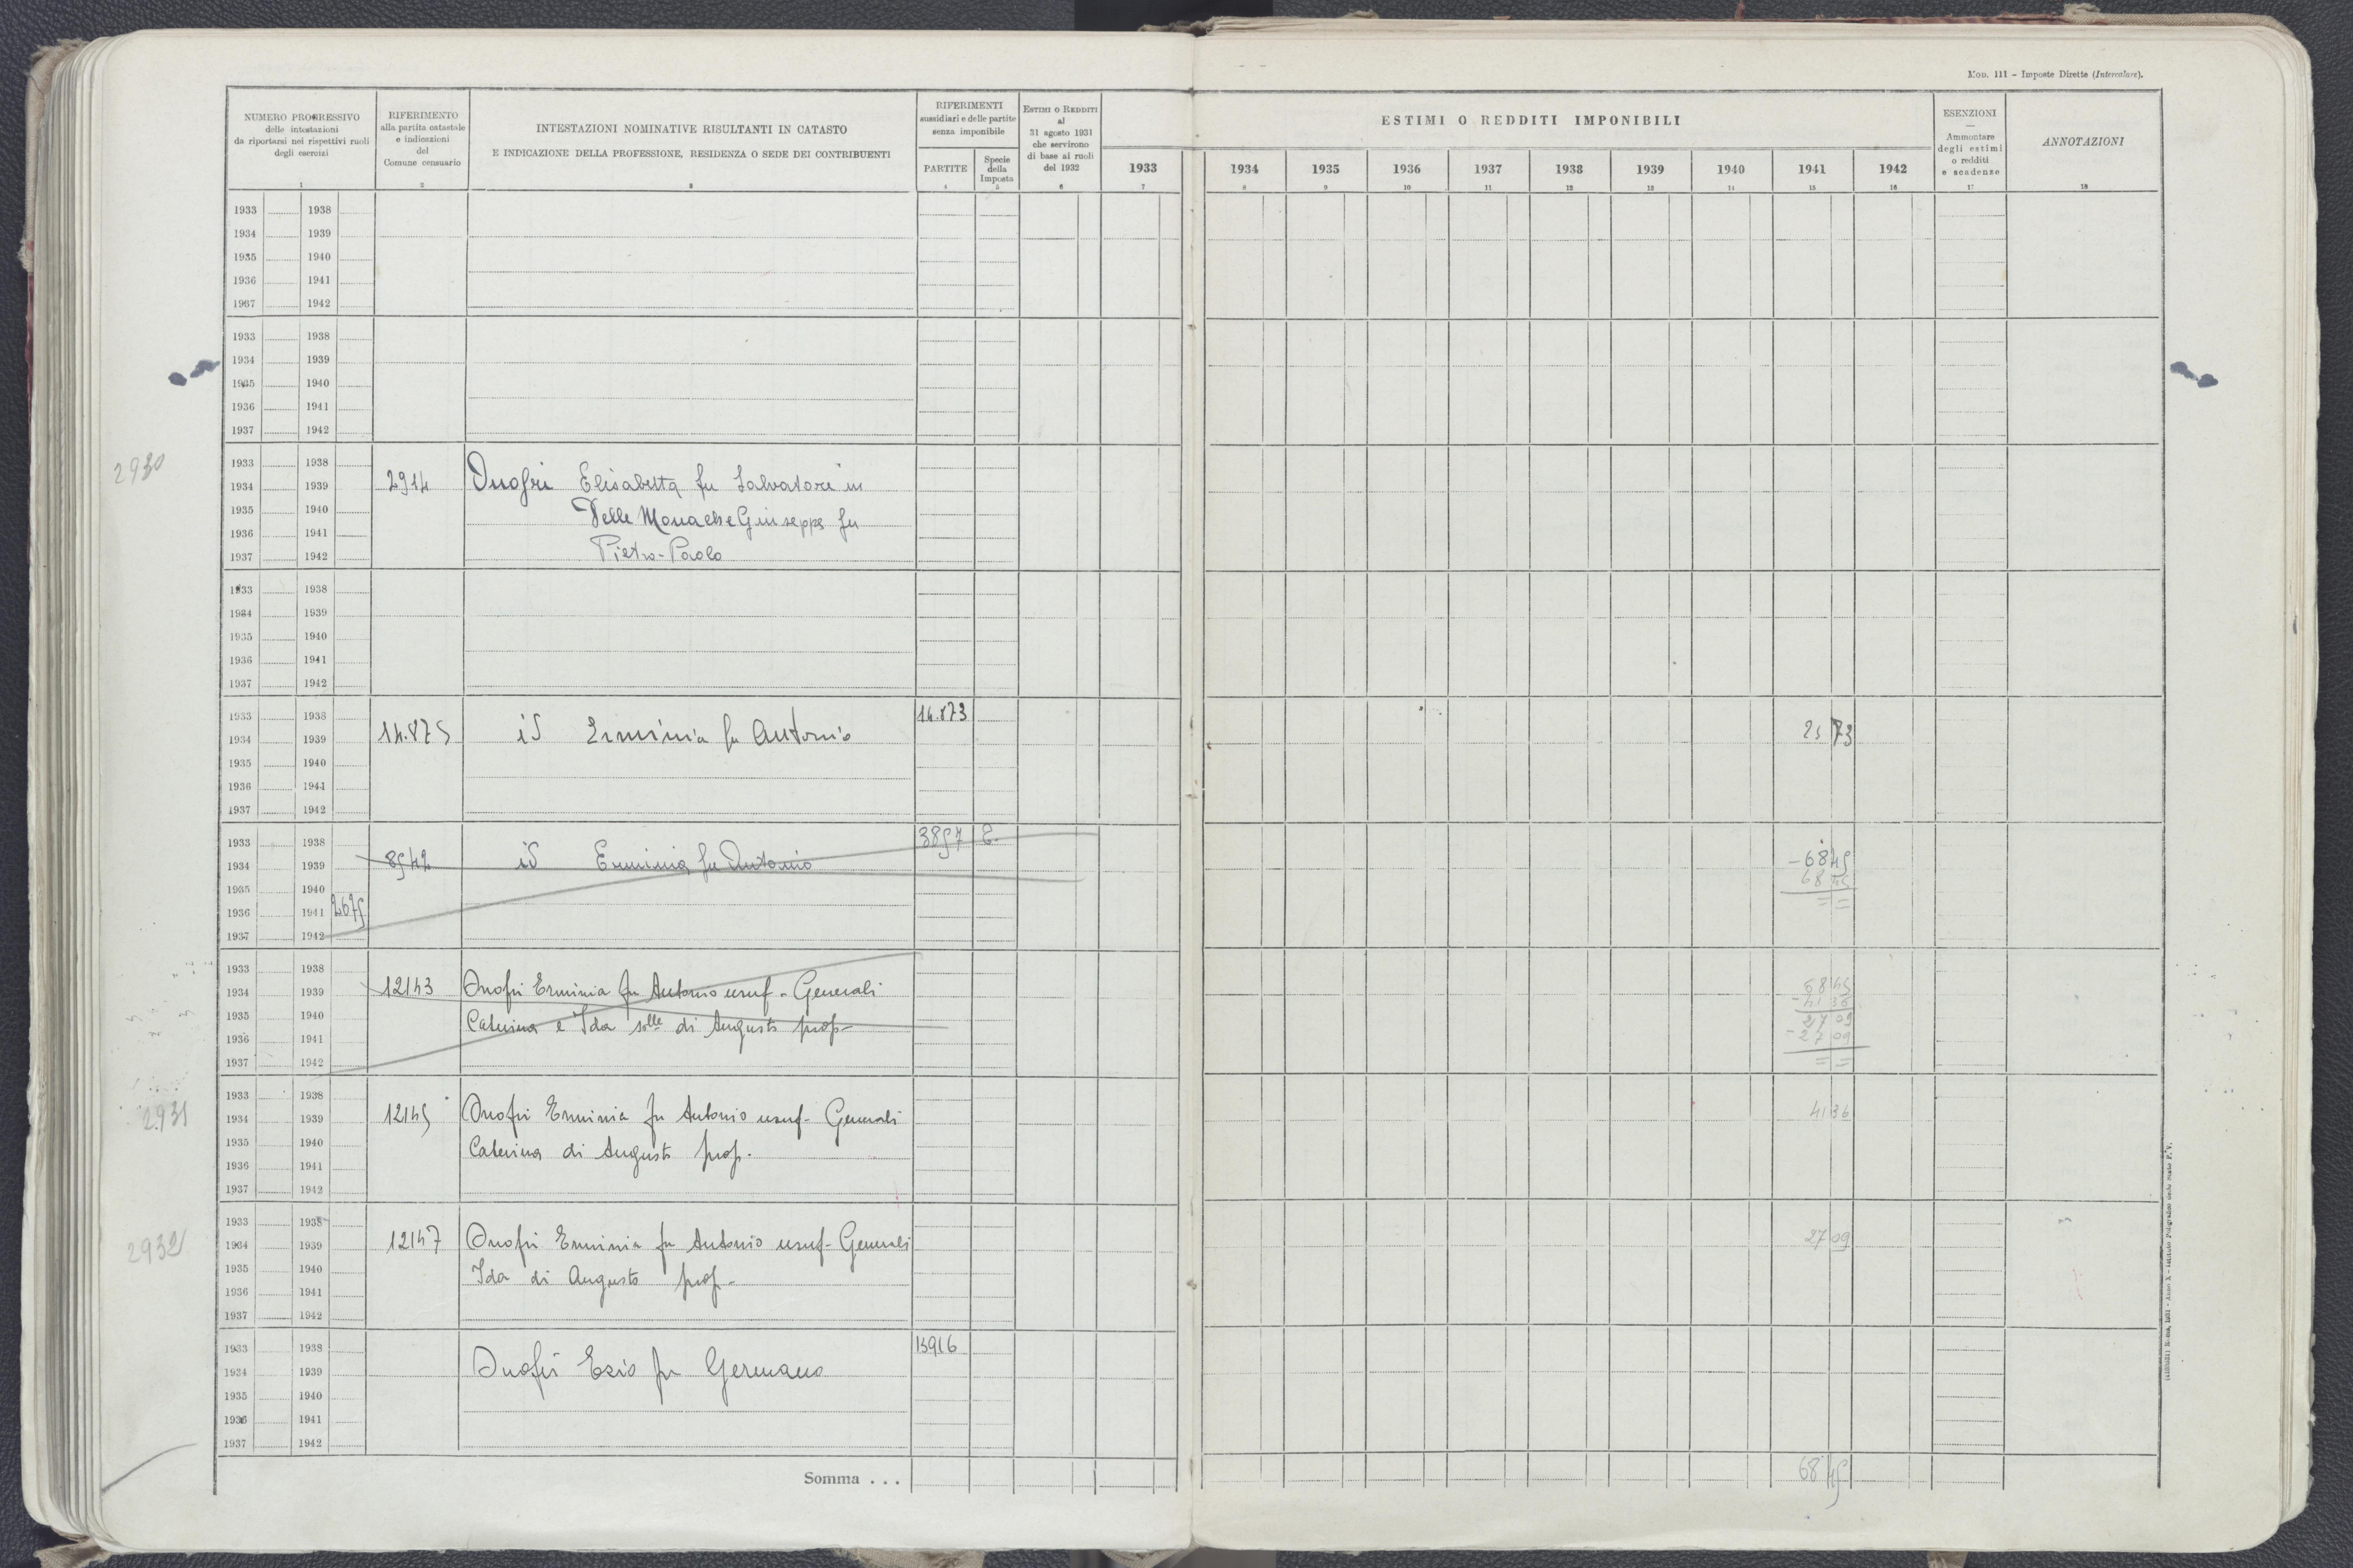 Mod. 111 - Imposte Dirette (Intercalare).
NUMERO PROGRESSIVO
delle intestazioni
da riportarsi nei rispettivi ruoli
degli esercizi
1
RIFERIMENTO
alla partita catastale
e indicazioni
del
Comune censuario
2
INTESTAZIONI NOMINATIVE RISULTANTI IN CATASTO
E INDICAZIONE DELLA PROFESSIONE, RESIDENZA O SEDE DEI CONTRIBUENTI
3
RIFERIMENTI
sussidiari e delle partite
senza imponibile
PARTITE
4
Specie
della
Imposta
5
Estimi o Redditi
al
31 agosto 1931
che servirono
di base ai ruoli
del 1932
6
1933
7
ESTIMI O REDDITI IMPONIBILI
1934 1935 1936 1937 1938 1939 1940 1941 1942
8 9 10 11 12 13 14 15 16
ESENZIONI
Ammontare
degli estimi
o redditi
e scadenze
17
ANNOTAZIONI
18
1933 1938
1934 1939
1935 1940
1936 1941
1937 1942
1933 1938
1934 1939
1935 1940
1936 1941
1937 1942
2930
1933 1938
1934 1939 2914 Onofri Elisabetta fu Salvatore in
1935 1940 Delle Monache Giuseppe fu
1936 1941
1937 1942 Pietro-Paolo
1933 1938
1934 1939
1935 1940
1936 1941
1937 1942
1933 1938 14.873
1934 1939 14.875 id Erminia fu Antonio 25 73
1935 1940
1936 1941
1937 1942
1933 1938 3857 E.
1934 1939 8542 id Erminia fu Antonio - 68 45
1935 1940 68 45
1936 1941 2675 = =
1937 1942
1933 1938
1934 1939 12143 Onofri Erminia fu Antonio usuf - Generali 68 45
- 41 36
1935 1940 Caterina e Ida slle di Augusto prop- 27 09
1936 1941 - 27 09
1937 1942 = =
2931
1933 1938
1934 1939 12145 Onofri Erminia fu Antonio usuf- Generali 41 36
1935 1940 Caterina di Augusto prop.
1936 1941
1937 1942
2932
1933 1938
1934 1939 12147 Onofri Erminia fu Antonio usuf- Generali 27 09
1935 1940 Ida di Augusto prop-
1936 1941
1937 1942
1933 1938 13916
1934 1939 Onofri Ezio fu Germano
1935 1940
1936 1941
1937 1942
Somma . . . 68 45